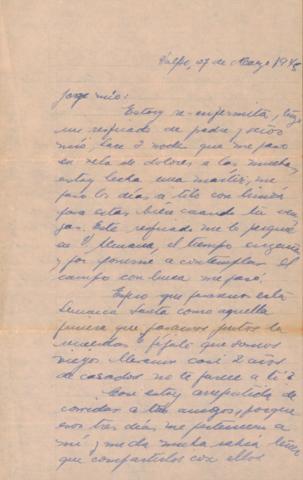 Valpo, 07 de Marzo 1948
Jorge mío:
Estoy re-enfermita, tengo
un resfriado de
mío, hace 2 noches que me paso
en vela de dolores a las muelas,
estoy hecha una mártir, me
paso los días a té con limón
para estar bien cuando tú ven
gas. Este resfriado me lo pesqué
en V. Alemana, el tiempo
y por ponerme a contemplar el
campo con luna me pasó.
Espero que pasemos esta
Semana Santa como aquella
primera que pasamos juntos te
recuerdas? fíjate que somos
viejos llevamos casi 2 años
de casados no te parece a ti?
Casi estoy arrepentida de
convidar a tus amigos, porque
esos tres días me pertenecen a
mí y me da mucha rabia tener
que compartirlos con ellos